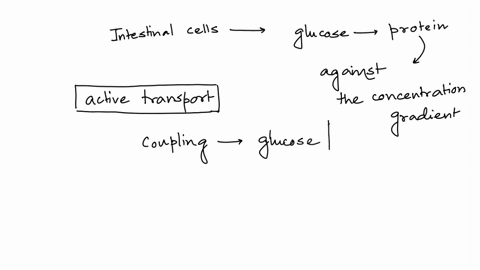 Intestinal cells → glucose → protein
against
the concentration
gradient
active transport
Coupling → glucose |